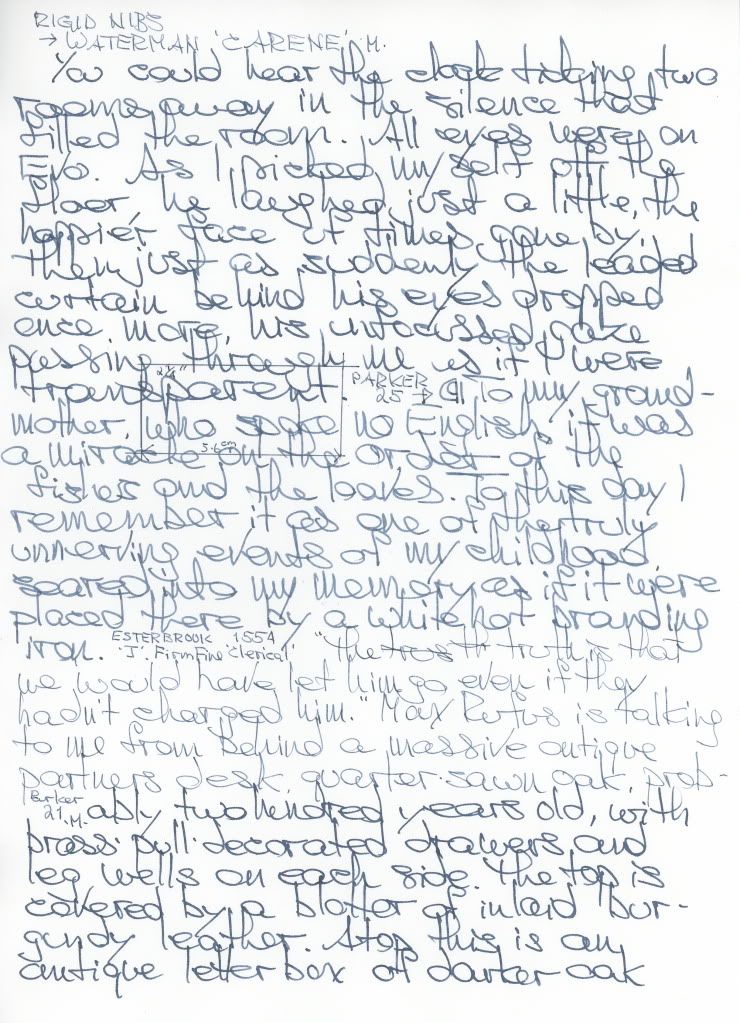 RIGID NIBS
→ WATERMAN 'CARENE' M.
You could hear the clock ticking two
rooms away in the silence that
filled the room. All eyes were on
Eno. As I picked myself off the
floor, he laughed, just a little, the
happier face of times gone by.
Then, just as suddenly the leaded
curtain behind his eyes dropped
once more, his unfocussed gaze
passing through me as if I were
transparent.
2¼"
5.6 cm
PARKER
25 → ¶ To my grand-
mother, who spoke no English, it was
a miracle on the order of the
fishes and the loaves. To this day I
remember it as one of the truly
unnerving events of my childhood
seared into my memory as if it were
placed there by a white hot branding
iron.
ESTERBROOK 1554
'J'. Firm Fine 'Clerical'
"The trust truth is that
we would have let him go even if they
hadn't charged him." Max Rufus is talking
to me from behind a massive antique
partners desk, quarter-sawn oak, prob-
Parker
21 M.
ably two hundred years old, with
brass-pull-decorated drawers and
leg wells on each side. The top is
covered by a blotter of inlaid bur-
gundy leather. Atop this is an
antique letter box of darker oak